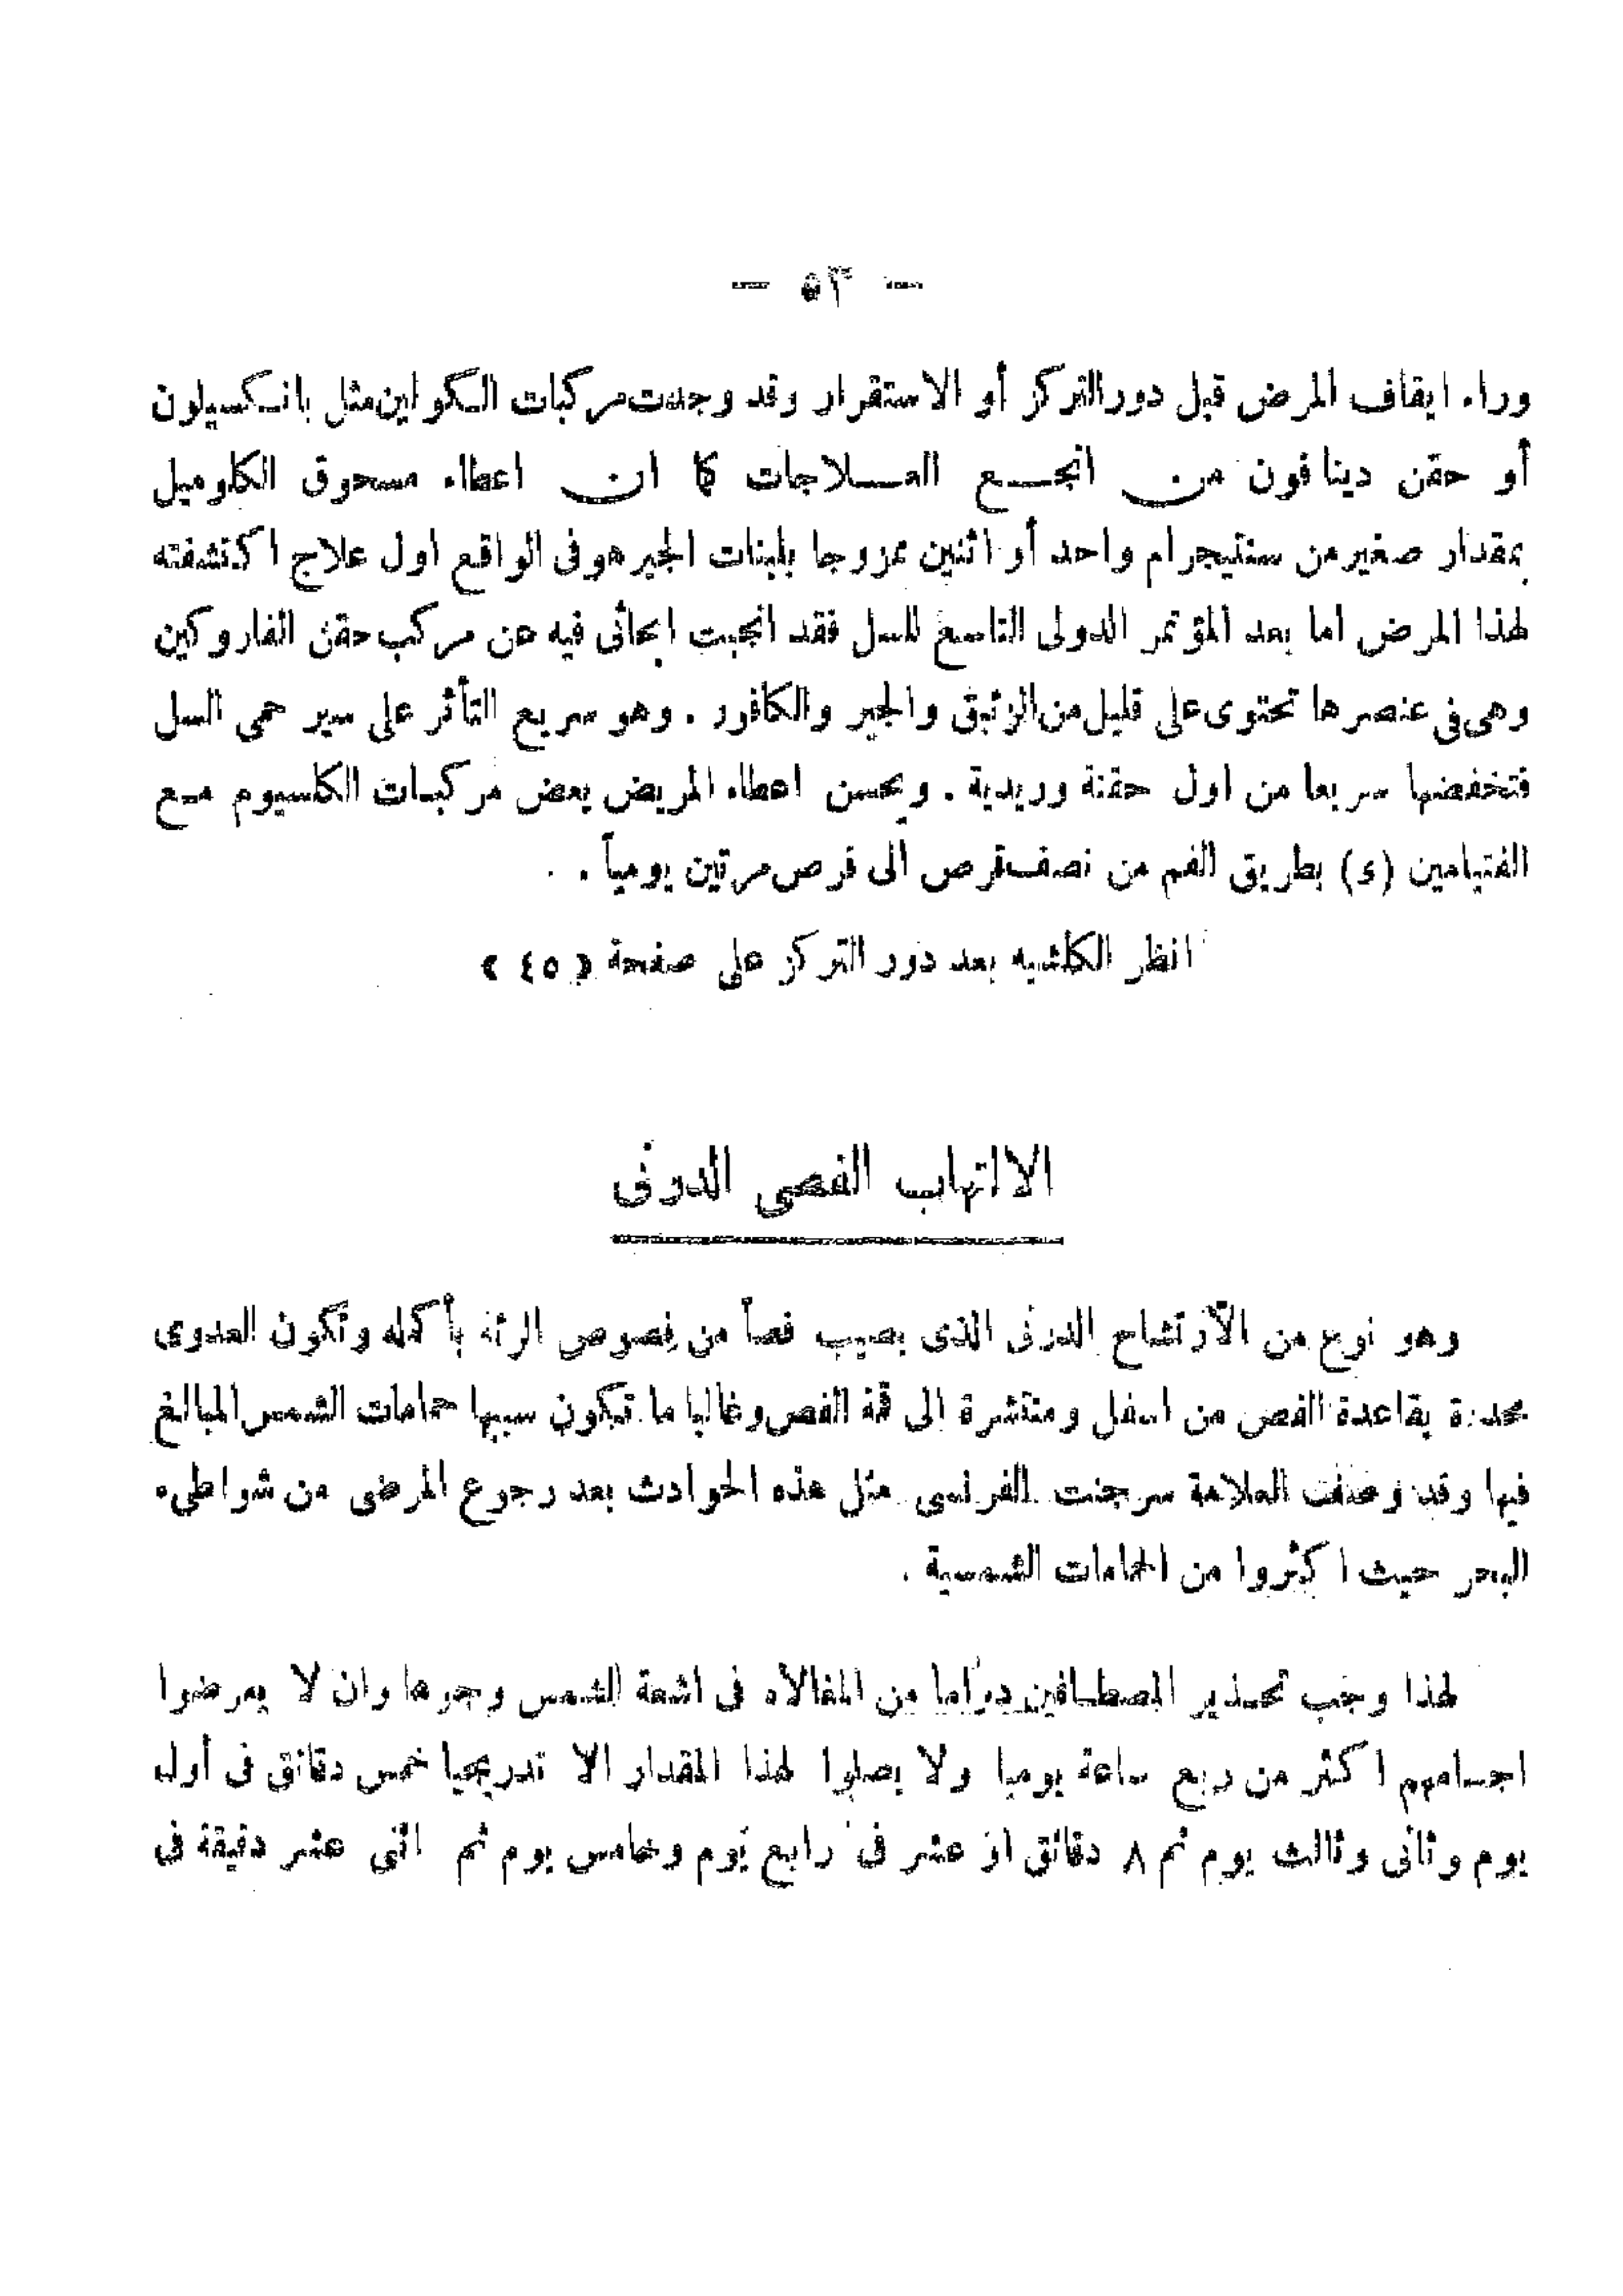 — ٥٣ —
وراء ايقاف المرض قبل دور التركز أو الاستقرار وقد وجدت مركبات الكولين مثل بانكسيلون
أو حقن دينافون من انجع العلاجات كما ان اعطاء مسحوق الكلوميل
بمقدار صغير من سنتيجرام واحد أو اثنين ممزوجا بلبنات الجير هو فى الواقع اول علاج اكتشفته
لهذا المرض اما بعد المؤتمر الدولى التاسع للسل فقد انجبت ابحاثى فيه عن مركب حقن الفاروكين
وهى فى عنصرها تحتوى على قليل من الزئبق والجير والكافور . وهو سريع التأثر على سير حمى السل
فتخفضها سريعا من اول حقنة وريدية . ويحسن اعطاء المريض بعض مركبات الكلسيوم مع
الفتيامين (ى) بطريق الفم من نصف قرص الى قرص مرتين يومياً .
انظر الكلشيه بعد دور التركز على صفحة « ٤٥ »
الالتهاب الفصى الدرنى
وهو نوع من الارتشاح الدرنى الذى يصيب فصاً من فصوص الرئة بأكمله وتكون العدوى
محددة بقاعدة الفص من اسفل ومنتشرة الى قمة الفص وغالبا ما تكون سببها حمامات الشمس المبالغ
فيها وقد وصفت العلامة سرجنت الفرنسى مثل هذه الحوادث بعد رجوع المرضى من شواطىء
البحر حيث اكثروا من الحمامات الشمسية .
لهذا وجب تحذير المصطافين دواما من المغالاه فى اشعة الشمس وحرها وان لا يعرضوا
اجسامهم اكثر من ربع ساعة يوميا ولا يصلوا لهذا المقدار الا تدريجيا خمس دقائق فى أول
يوم وثانى وثالث يوم ثم ٨ دقائق او عشر فى رابع يوم وخامس يوم ثم اثنى عشر دقيقة فى